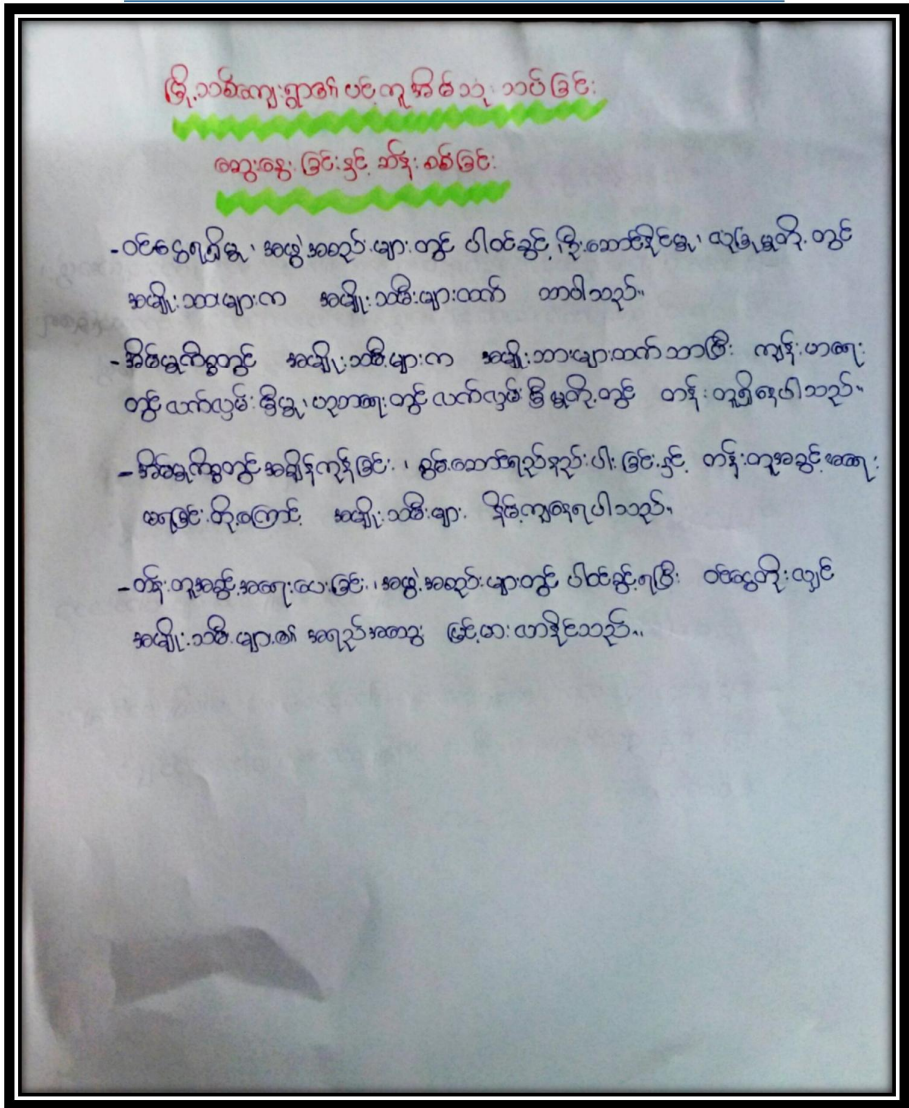 မြို့သစ်ကျေးရွာ၏ပင့်ကူအိမ်သုံးသပ်ခြင်း
ဆွေးနွေးခြင်းနှင့် ဆန်းစစ်ခြင်း
-ဝင်ငွေရရှိမှု၊ အဖွဲ့အစည်းများတွင် ပါဝင်ခွင့်၊ ဦးဆောင်နိုင်မှု၊ ယုံကြည်မှုတို့တွင်
အမျိုးသားများက အမျိုးသမီးများထက် သာပါသည်။
-အိမ်မှုကိစ္စတွင် အမျိုးသမီးများက အမျိုးသားများထက်သာပြီး ကျန်းမာရေး
တွင်လက်လှမ်းမှီမှု၊ ပညာရေးတွင်လက်လှမ်းမှီမှုတို့တွင် တန်းတူရှိနေပါသည်။
-အိမ်မှုကိစ္စတွင်အချိန်ကုန်ခြင်း၊ စွမ်းဆောင်ရည်နည်းပါးခြင်းနှင့် တန်းတူအခွင့်အရေး
မရခြင်းတို့ကြောင့် အမျိုးသမီးများ နိမ့်ကျနေရပါသည်။
-တန်းတူအခွင့်အရေးပေးခြင်း၊ အဖွဲ့အစည်းများတွင် ပါဝင်ခွင့်ရပြီး ဝင်ငွေတိုးလျှင်
အမျိုးသမီးများ၏ အရည်အသွေး မြင့်မားလာနိုင်သည်။